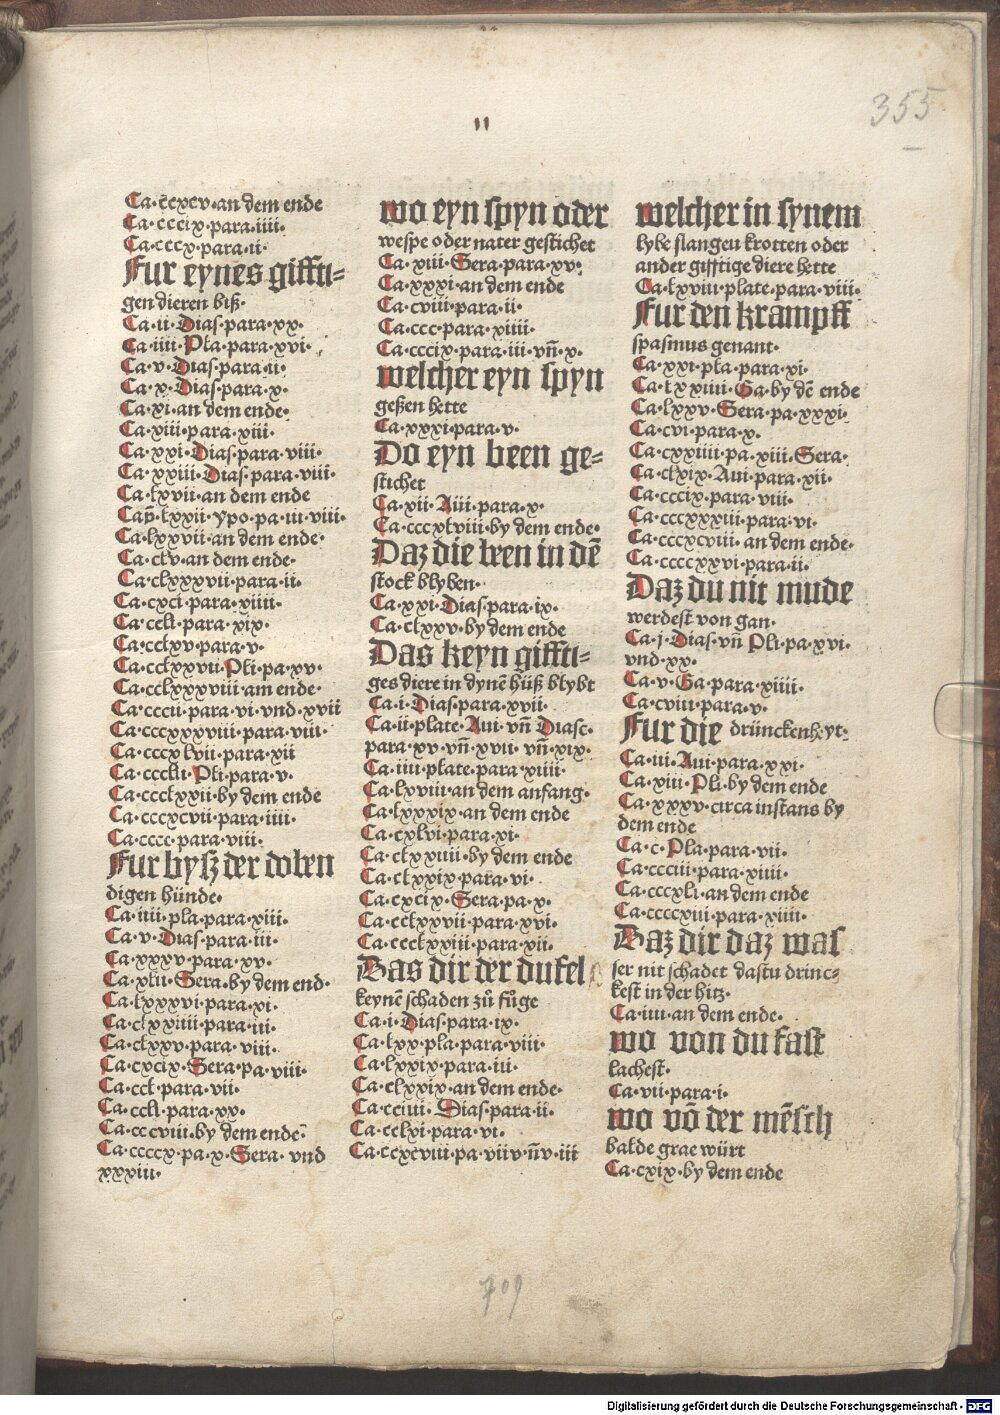 355
11
Ca·ccxcv·an dem ende
Ca·cccix·para·iiii·
Ca·cccx·para·ii·
Fur eynes giffti=
gen dieren biß·
Ca·ii·Dias·para·xx·
Ca·iiii·Pla·para·xvi·
Ca·v·Dias·para·ii·
Ca·x·Dias·para·x·
Ca·xi·an dem ende·
Ca·xiii·para·xiii·
Ca·xxi·Dias·para·viii·
Ca·xxiii·Dias·para·viii·
Ca·lxvii·an dem ende
Cap̄·lxxii·ypo·pa·iii·viii·
Ca·lxxvii·an dem ende·
Ca·clv·an dem ende·
Ca·clxxxvii·para·ii·
Ca·cxci·para·xiiii·
Ca·ccli·para·xix·
Ca·cclxv·para·v·
Ca·cclxxvii·Pli·pa·xv·
Ca·cclxxxviii·am ende·
Ca·cccii·para·vi·vnd·xvii
Ca·cccxxxviii·para·viii·
Ca·cccxlvii·para·xii
Ca·cccli·Pli·para·v·
Ca·ccclxxii·by dem ende
Ca·cccxcvii·para·iiii·
Ca·cccc·para·viii·
Fur byß der doben
digen hünde·
Ca·iiii·pla·para·xiii·
Ca·v·Dias·para·iii·
Ca·xxxv·para·xv·
Ca·xlii·Sera·by dem end·
Ca·lxxxvi·para·xi·
Ca·clxxiiii·para·iii·
Ca·clxxv·para·viii·
Ca·cxcix·Sera·pa·viii·
Ca·ccl·para·vii·
Ca·ccli·para·xx·
Ca·cccviii·by dem ende·
Ca·ccccx·pa·x·Sera·vnd
xxxiii·
wo eyn spyn oder
wespe oder nater gestichet
Ca·xiii·Sera·para·xv·
Ca·xxxi·an dem ende
Ca·cviii·para·ii·
Ca·ccc·para·xiiii·
Ca·cccix·para·iii·vñ·x·
welcher eyn spyn
geßen hette
Ca·xxxi·para·v·
Do eyn been ge=
stichet
Ca·xii·Aui·para·x·
Ca·cccxlviii·by dem ende·
Daz die been in dē
stock blyben·
Ca·xxi·Dias·para·ix·
Ca·clxxv·by dem ende
Das keyn giffti=
ges diere in dynē hüß blybt
Ca·i·Dias·para·xvii·
Ca·ii·plate·Aui·vñ Diasc·
para·xv·vñ·xvii·vñ·xix·
Ca·iiii·plate·para·xiiii·
Ca·lxviii·an dem anfang·
Ca·lxxxix·an dem ende
Ca·cxlvi·para·xi·
Ca·clxxiiii·by dem ende
Ca·clxxix·para·vi·
Ca·cxcix·Sera·pa·x·
Ca·cclxxvii·para·xvi·
Ca·ccclxxiii·para·xii·
Das dir der dufel
keynē schaden zů fůge
Ca·i·Dias·para·ix·
Ca·lxx·pla·para·viii·
Ca·lxxix·para·iii·
Ca·clxxix·an dem ende·
Ca·cciiii·Dias·para·ii·
Ca·cclxi·para·vi·
Ca·ccxcviii·pa·viiv·ñv·iii
welcher in synem
lybe slangen krotten oder
ander gifftige diere hette
Ca·lxviii·plate·para·viii·
Fur den krampff
spasmus genant·
Ca·xxi·pla·para·xi·
Ca·lxxiiii·Ga·by dē ende
Ca·lxxv·Sera·pa·xxxi·
Ca·cvi·para·x·
Ca·cxxiiii·pa·xiii·Sera·
Ca·clxix·Aui·para·xii·
Ca·cccix·para·viii·
Ca·cccxxxiii·para·vi·
Ca·cccxcviii·an dem ende·
Ca·ccccxxvi·para·ii·
Daz du nit mude
werdest von gan·
Ca·j·Dias·vñ Pli·pa·xvi·
vnd·xx·
Ca·v·Ga·para·xiiii·
Ca·cviii·para·v·
Fur die drünckenheyt·
Ca·iii·Aui·para·xxi·
Ca·xiii·Pli·by dem ende
Ca·xxxv·circa instans by
dem ende
Ca·c·Pla·para·vii·
Ca·ccciii·para·xiiii·
Ca·cccxli·an dem ende
Ca·ccccxiii·para·xiiii·
Daz dir daz was
ser nit schadet dastu drinc=
kest in der hitz·
Ca·iiii·an dem ende·
wo von du fast
lachest·
Ca·vii·para·i·
wo vō der mēsch
balde grae würt
Ca·cxix·by dem ende
709
Digitalisierung gefördert durch die Deutsche Forschungsgemeinschaft - DFG